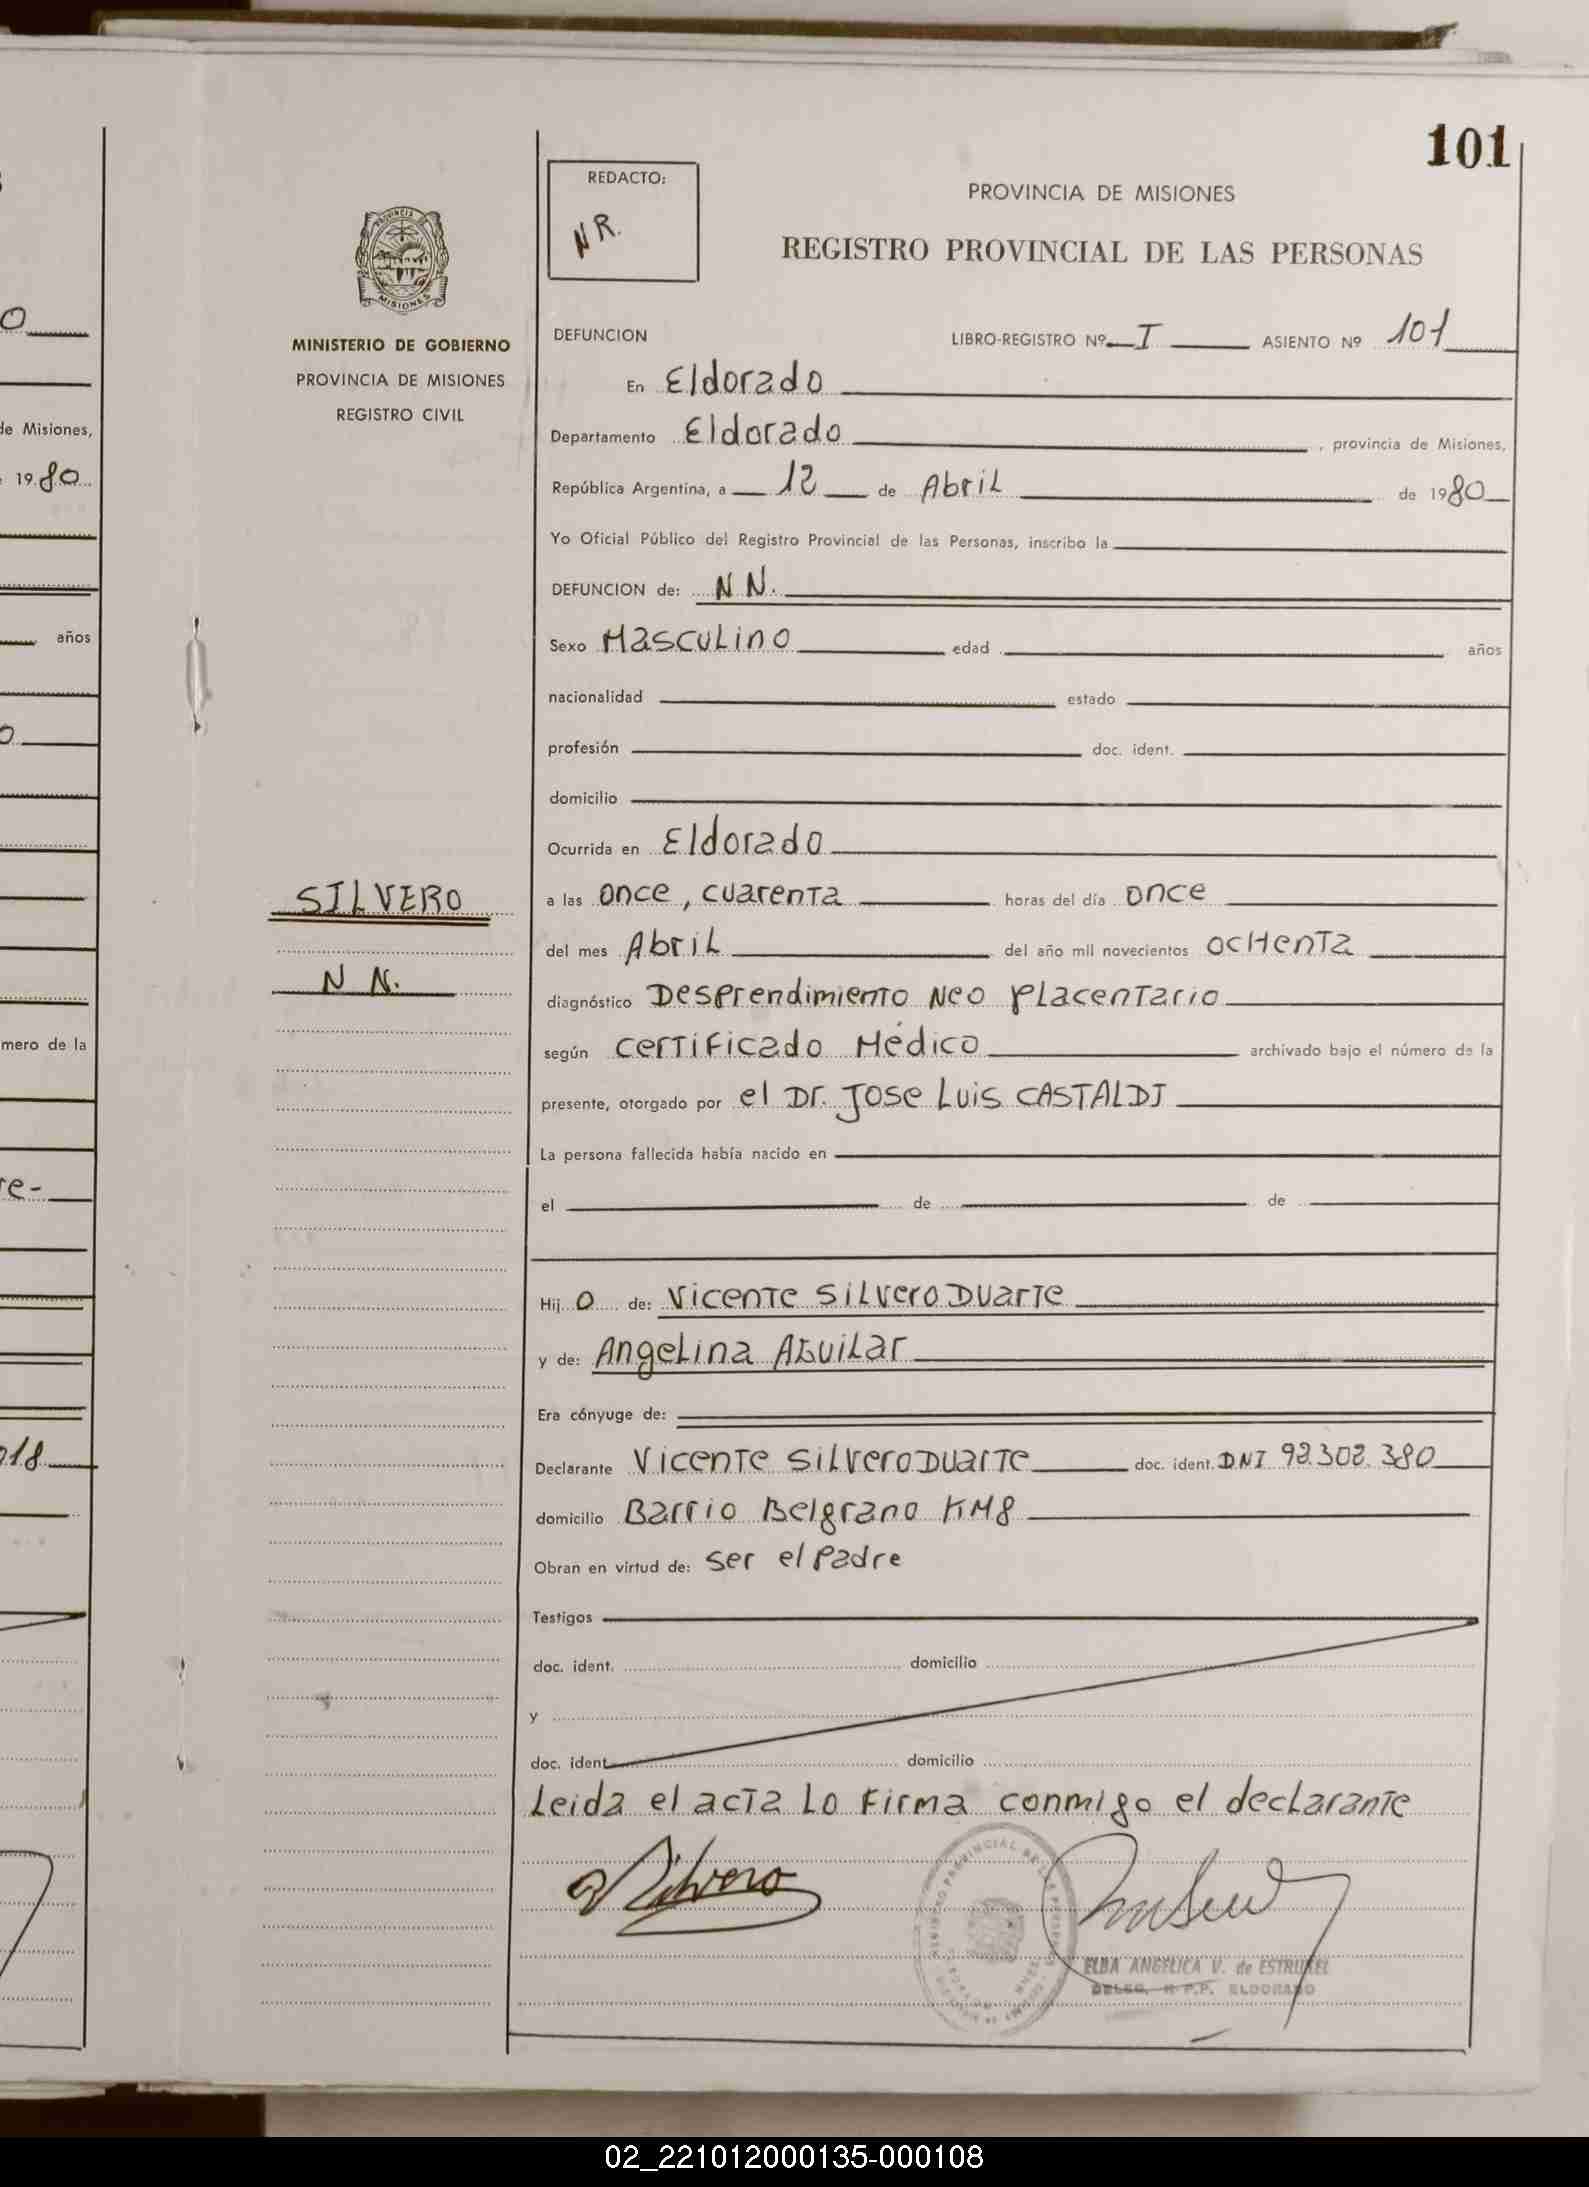 101
REDACTO:
NR.
PROVINCIA DE MISIONES
REGISTRO PROVINCIAL DE LAS PERSONAS
PROVINCIA DE
MISIONES
MINISTERIO DE GOBIERNO
PROVINCIA DE MISIONES
REGISTRO CIVIL
SILVERO
N N.
DEFUNCION LIBRO-REGISTRO Nº I ASIENTO Nº 101
En Eldorado
Departamento Eldorado , provincia de Misiones,
República Argentina, a 12 de Abril de 1980
Yo Oficial Público del Registro Provincial de las Personas, inscribo la
DEFUNCION de: N N.
Sexo Masculino edad años
nacionalidad estado
profesión doc. ident.
domicilio
Ocurrida en Eldorado
a las once, cuarenta horas del día once
del mes Abril del año mil novecientos ocHenta
diagnóstico Desprendimiento Neo placentario
según certificado Médico archivado bajo el número de la
presente, otorgado por el Dr. Jose Luis CASTALDI
La persona fallecida había nacido en
el de de
Hij o de: Vicente Silvero Duarte
y de: Angelina Aguilar
Era cónyuge de:
Declarante Vicente Silvero Duarte doc. ident. DNI 92.302.380
domicilio Barrio Belgrano KM8
Obran en virtud de: ser el Padre
Testigos
doc. ident. domicilio
y
doc. ident. domicilio
Leida el acta Lo Firma conmigo el declarante
Silvero
ELBA ANGELICA V. de ESTRUKEL
DELEG. R.P.P. ELDORADO
o
de Misiones,
1980
años
o
mero de la
re-
018
02_221012000135-000108